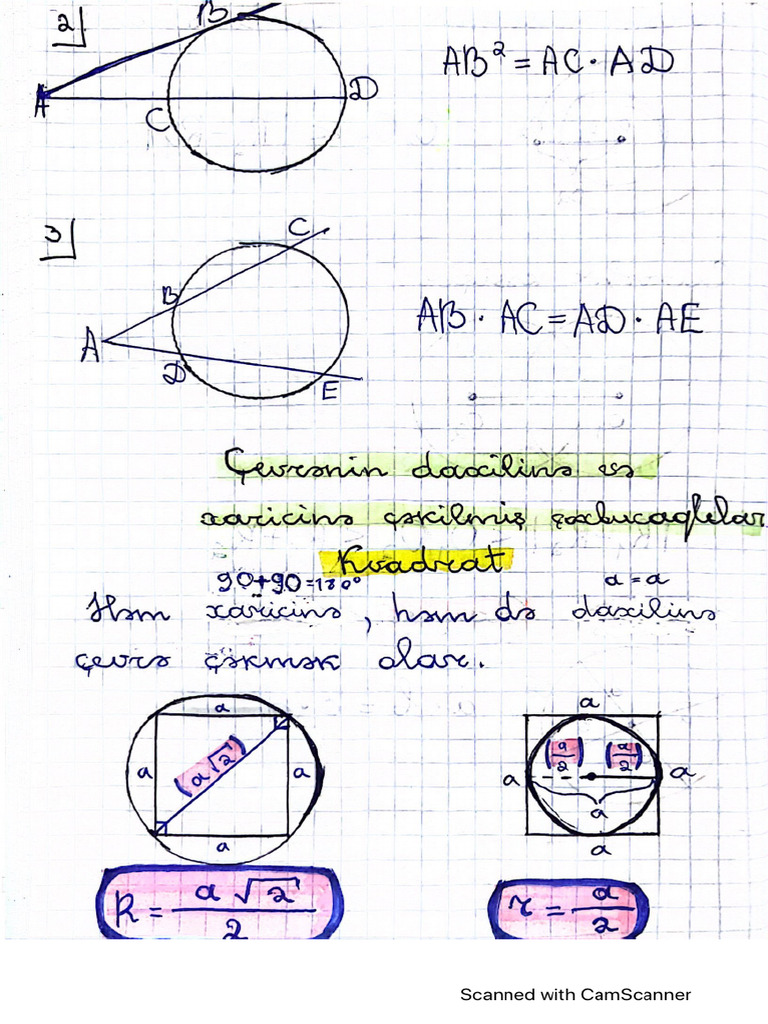 2
B
AB² = AC · AD
A
D
C
3
C
B
AB · AC = AD · AE
A
D
E
Çevrənin daxilinə və
xaricinə çəkilmiş çoxbucaqlılar
Kvadrat
90+90=180° a = a
Həm xaricinə, həm də daxilinə
çevrə çəkmək olar.
a a
(a√2) (a/2) (a/2)
a a a a
a
a a
R = a√2/2 r = a/2
Scanned with CamScanner